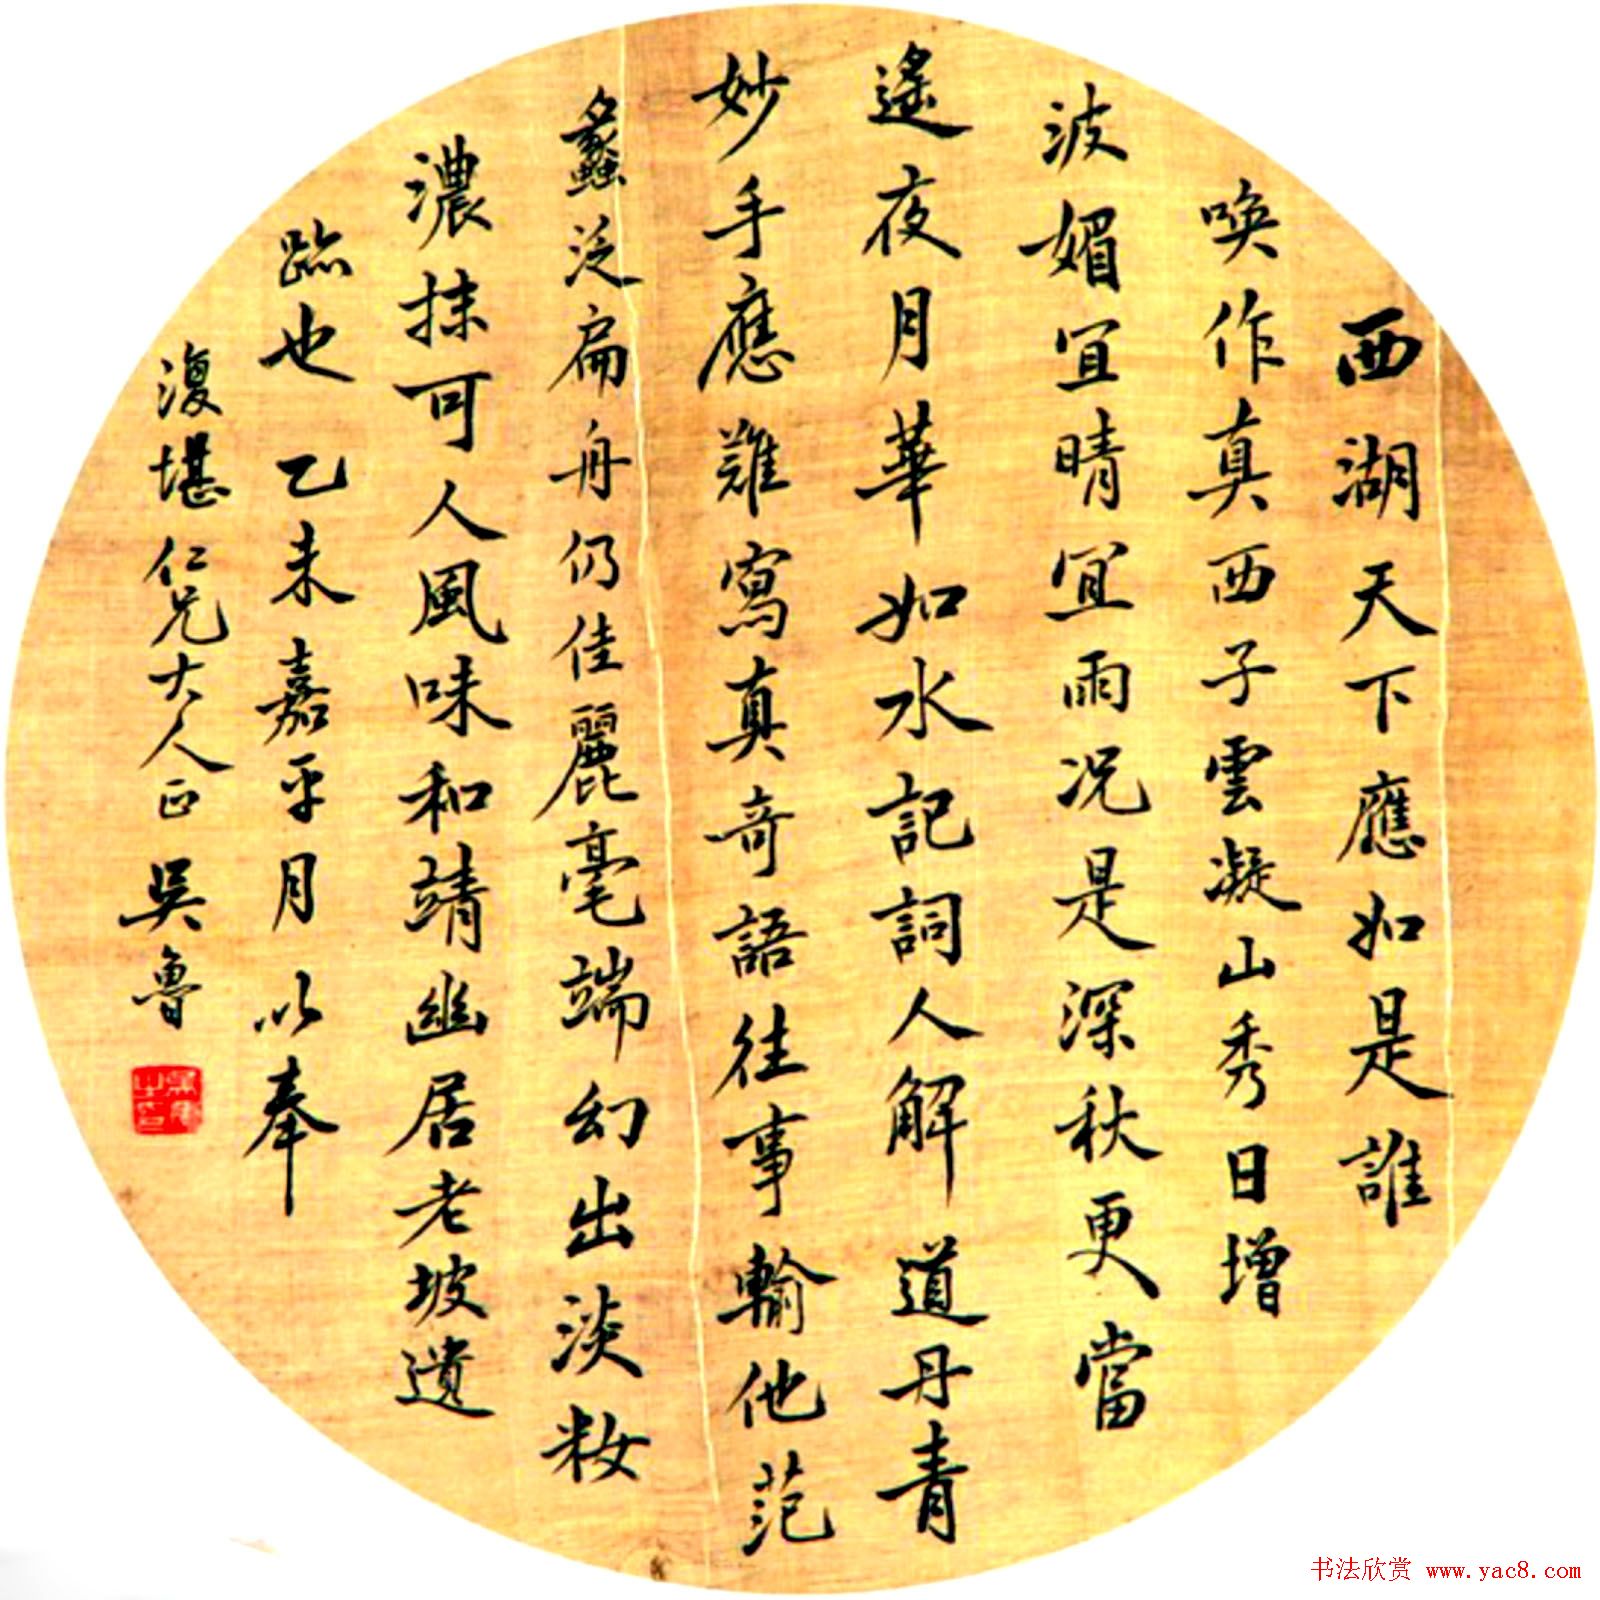 西湖天下應如是誰
喚作真西子雲凝山秀日增
波媚宜晴宜雨況是深秋更當
遙夜月華如水記詞人解道丹青
妙手應難寫真奇語往事輸他范
蠡泛扁舟仍佳麗毫端幻出淡妝
濃抹可人風味和靖幽居老坡遺
跡也乙未嘉平月以奉
復堪仁兄大人正吳魯
书法欣赏 www.yac8.com